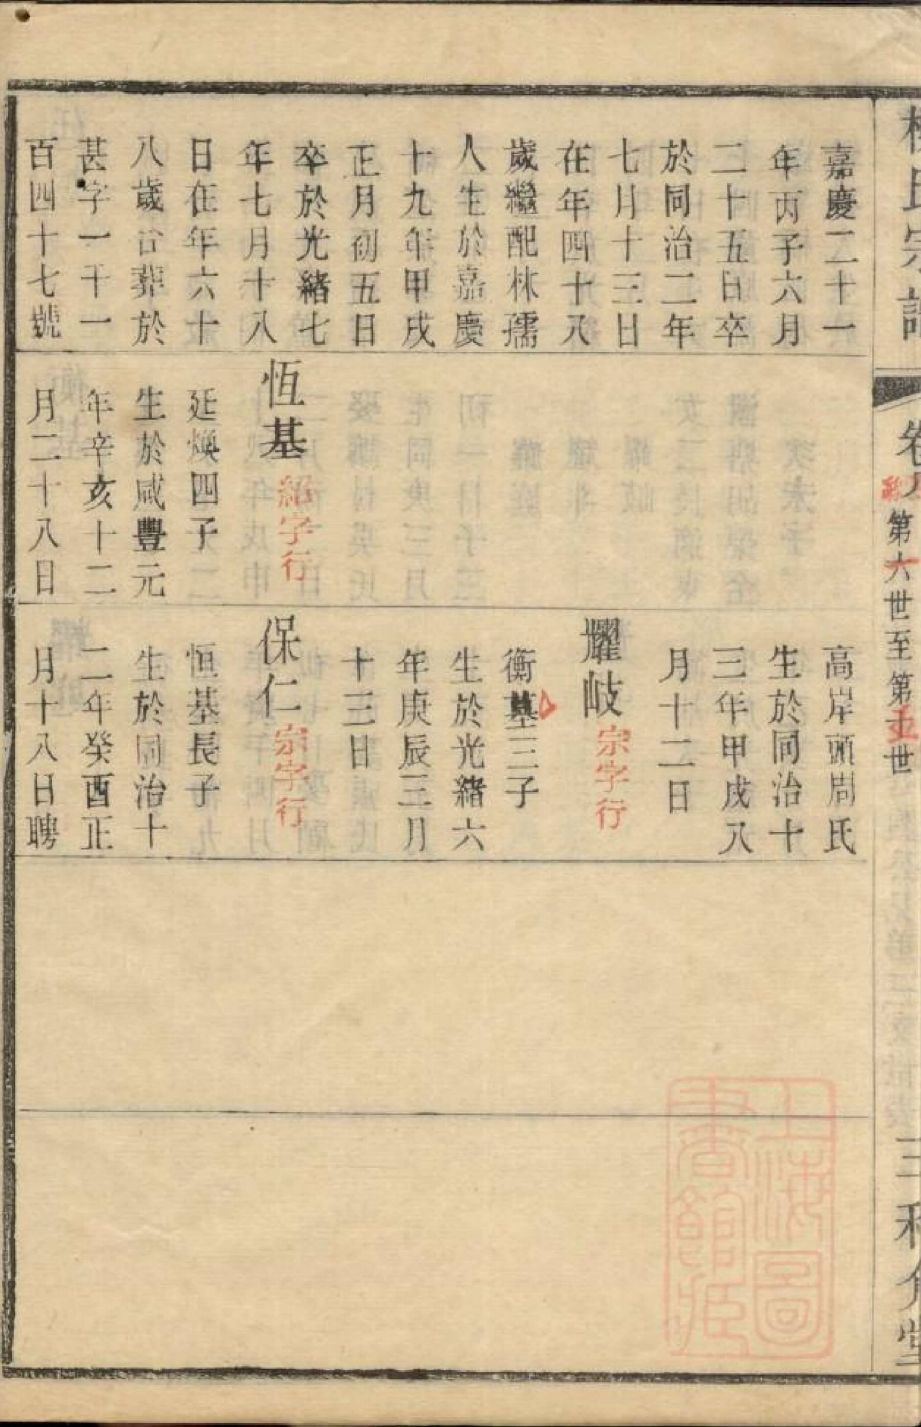 氏宗譜
卷
第六世至第十世
嘉慶二十一
年丙子六月
二十五日卒
於同治二年
七月十三日
在年四十八
歲繼配林孺
人生於嘉慶
十九年甲戌
正月初五日
卒於光緒七
年七月十八
日在年六十
八歲合葬於
甚字一千一
百四十七號
恆基
紹字行
廷煥四子
生於咸豐元
年辛亥十二
月二十八日
高岸頭周氏
生於同治十
三年甲戌八
月十二日
耀岐
宗字行
衡基三子
生於光緒六
年庚辰三月
十三日
保仁
宗字行
恒基長子
生於同治十
二年癸酉正
月十八日聘
上海圖
書館藏